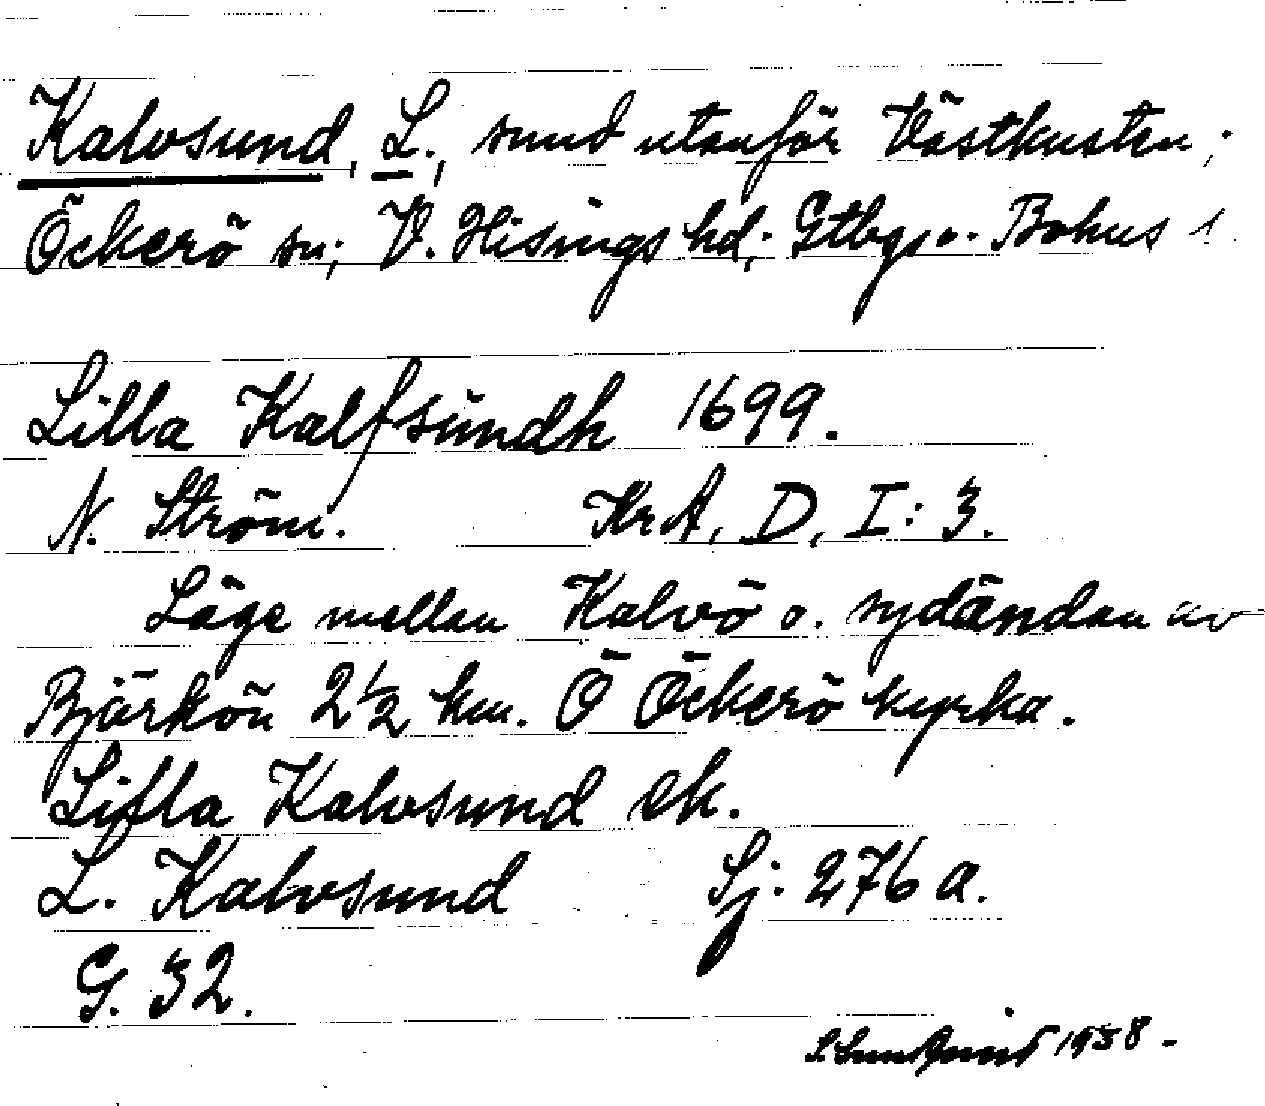 Kalvsund, L., sund utanför Västkusten;
Öckerö sn; V. Hisings hd; Gtbgs o. Bohus l
Lilla Kalfsündh 1699.
N. Ström. KrA, D, I: 3.
Läge mellan Kalvö o. sydändan av
Björkön 2½ km. Ö Öckerö kyrka.
Lilla Kalvsund ek.
L. Kalvsund Sj. 276 a.
G. 32.
1958.